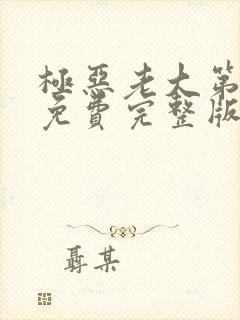 極惡老大第
免費完整版
聶某